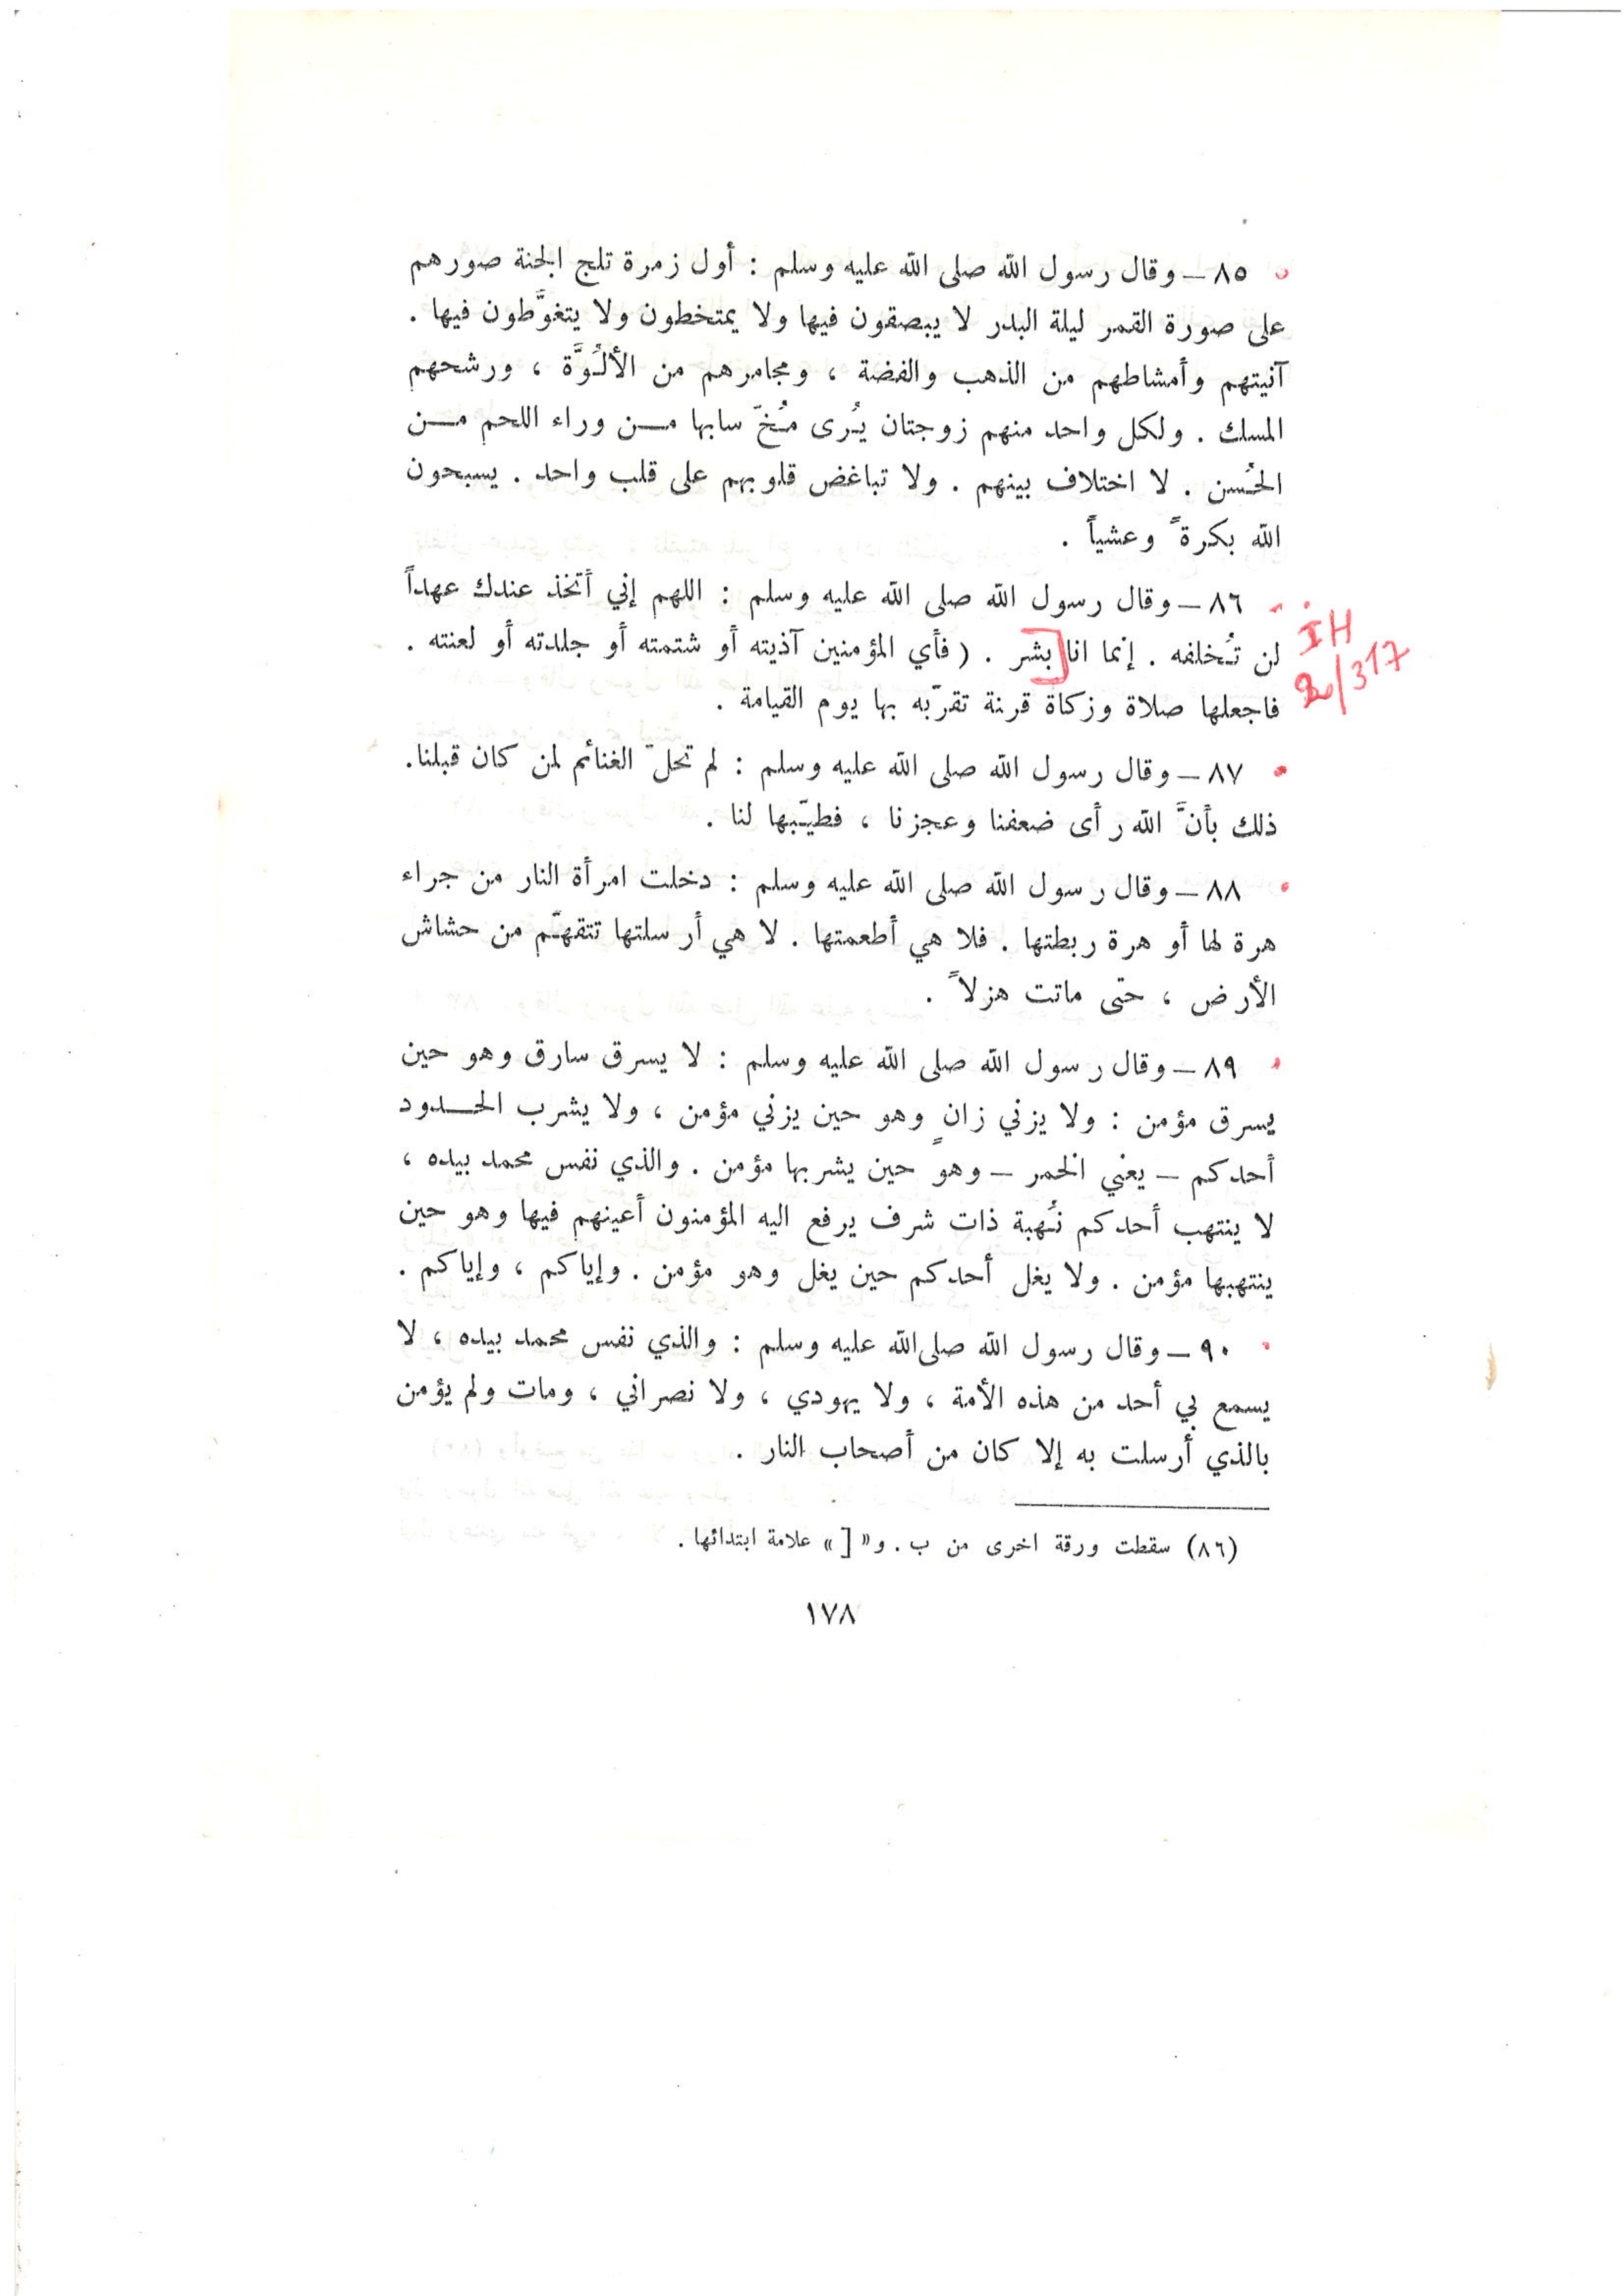 ٨٥ ــ وقال رسول الله صلى الله عليه وسلم : أول زمرة تلج الجنة صورهم
على صورة القمر ليلة البدر لا يبصقون فيها ولا يمتخطون ولا يتغوَّطون فيها .
آنيتهم وأمشاطهم من الذهب والفضة ، ومجامرهم من الألُوَّة ، ورشحهم
المسك . ولكل واحد منهم زوجتان يُرى مُخّ سابها مـــن وراء اللحم مـــن
الحُسن . لا اختلاف بينهم . ولا تباغض قلوبهم على قلب واحد . يسبحون
الله بكرةً وعشياً .
٨٦ ــ وقال رسول الله صلى الله عليه وسلم : اللهم إني أتخذ عندك عهداً
IH
لن تُخلفه . إنما انا [بشر . ( فأي المؤمنين آذيته أو شتمته أو جلدته أو لعنته .
/317
فاجعلها صلاة وزكاة قرنة تقرّبه بها يوم القيامة .
٨٧ ــ وقال رسول الله صلى الله عليه وسلم : لم تحلّ الغنائم لمن كان قبلنا.
ذلك بأنَّ الله رأى ضعفنا وعجزنا ، فطيّبها لنا .
٨٨ ــ وقال رسول الله صلى الله عليه وسلم : دخلت امرأة النار من جراء
هرة لها أو هرة ربطتها . فلا هي أطعمتها . لا هي أرسلتها تتقهّم من حشاش
الأرض ، حتى ماتت هزلاً .
٨٩ ــ وقال رسول الله صلى الله عليه وسلم : لا يسرق سارق وهو حين
يسرق مؤمن : ولا يزني زانٍ وهو حين يزني مؤمن ، ولا يشرب الحـــدود
أحدكم ــ يعني الخمر ــ وهو حين يشربها مؤمن . والذي نفس محمد بيده ،
لا ينتهب أحدكم نُهبة ذات شرف يرفع اليه المؤمنون أعينهم فيها وهو حين
ينتهبها مؤمن . ولا يغل أحدكم حين يغل وهو مؤمن . وإياكم ، وإياكم .
٩٠ ــ وقال رسول الله صلى الله عليه وسلم : والذي نفس محمد بيده ، لا
يسمع بي أحد من هذه الأمة ، ولا يهودي ، ولا نصراني ، ومات ولم يؤمن
بالذي أرسلت به إلا كان من أصحاب النار .
(٨٦) سقطت ورقة اخرى من ب . و« [ » علامة ابتدائها .
١٧٨